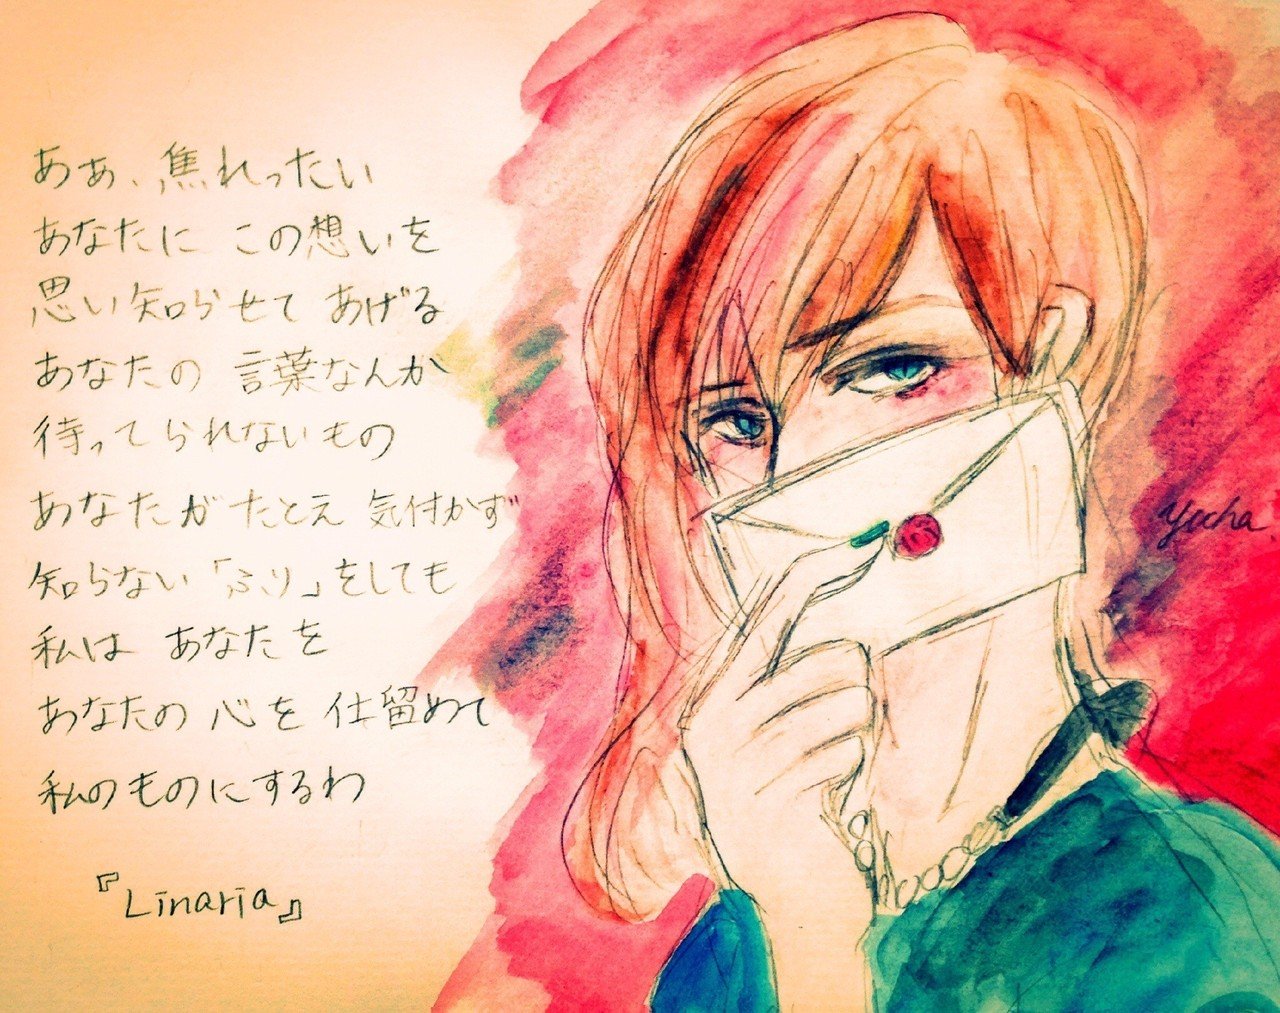 ああ、焦れったい
あなたに この想いを
思い知らせて あげる
あなたの 言葉なんか
待ってられないもの
あなたがたとえ 気付かず
知らない「ふり」をしても
私は あなたを
あなたの 心を 仕留めて
私のものにするわ
『Linaria』
yucha